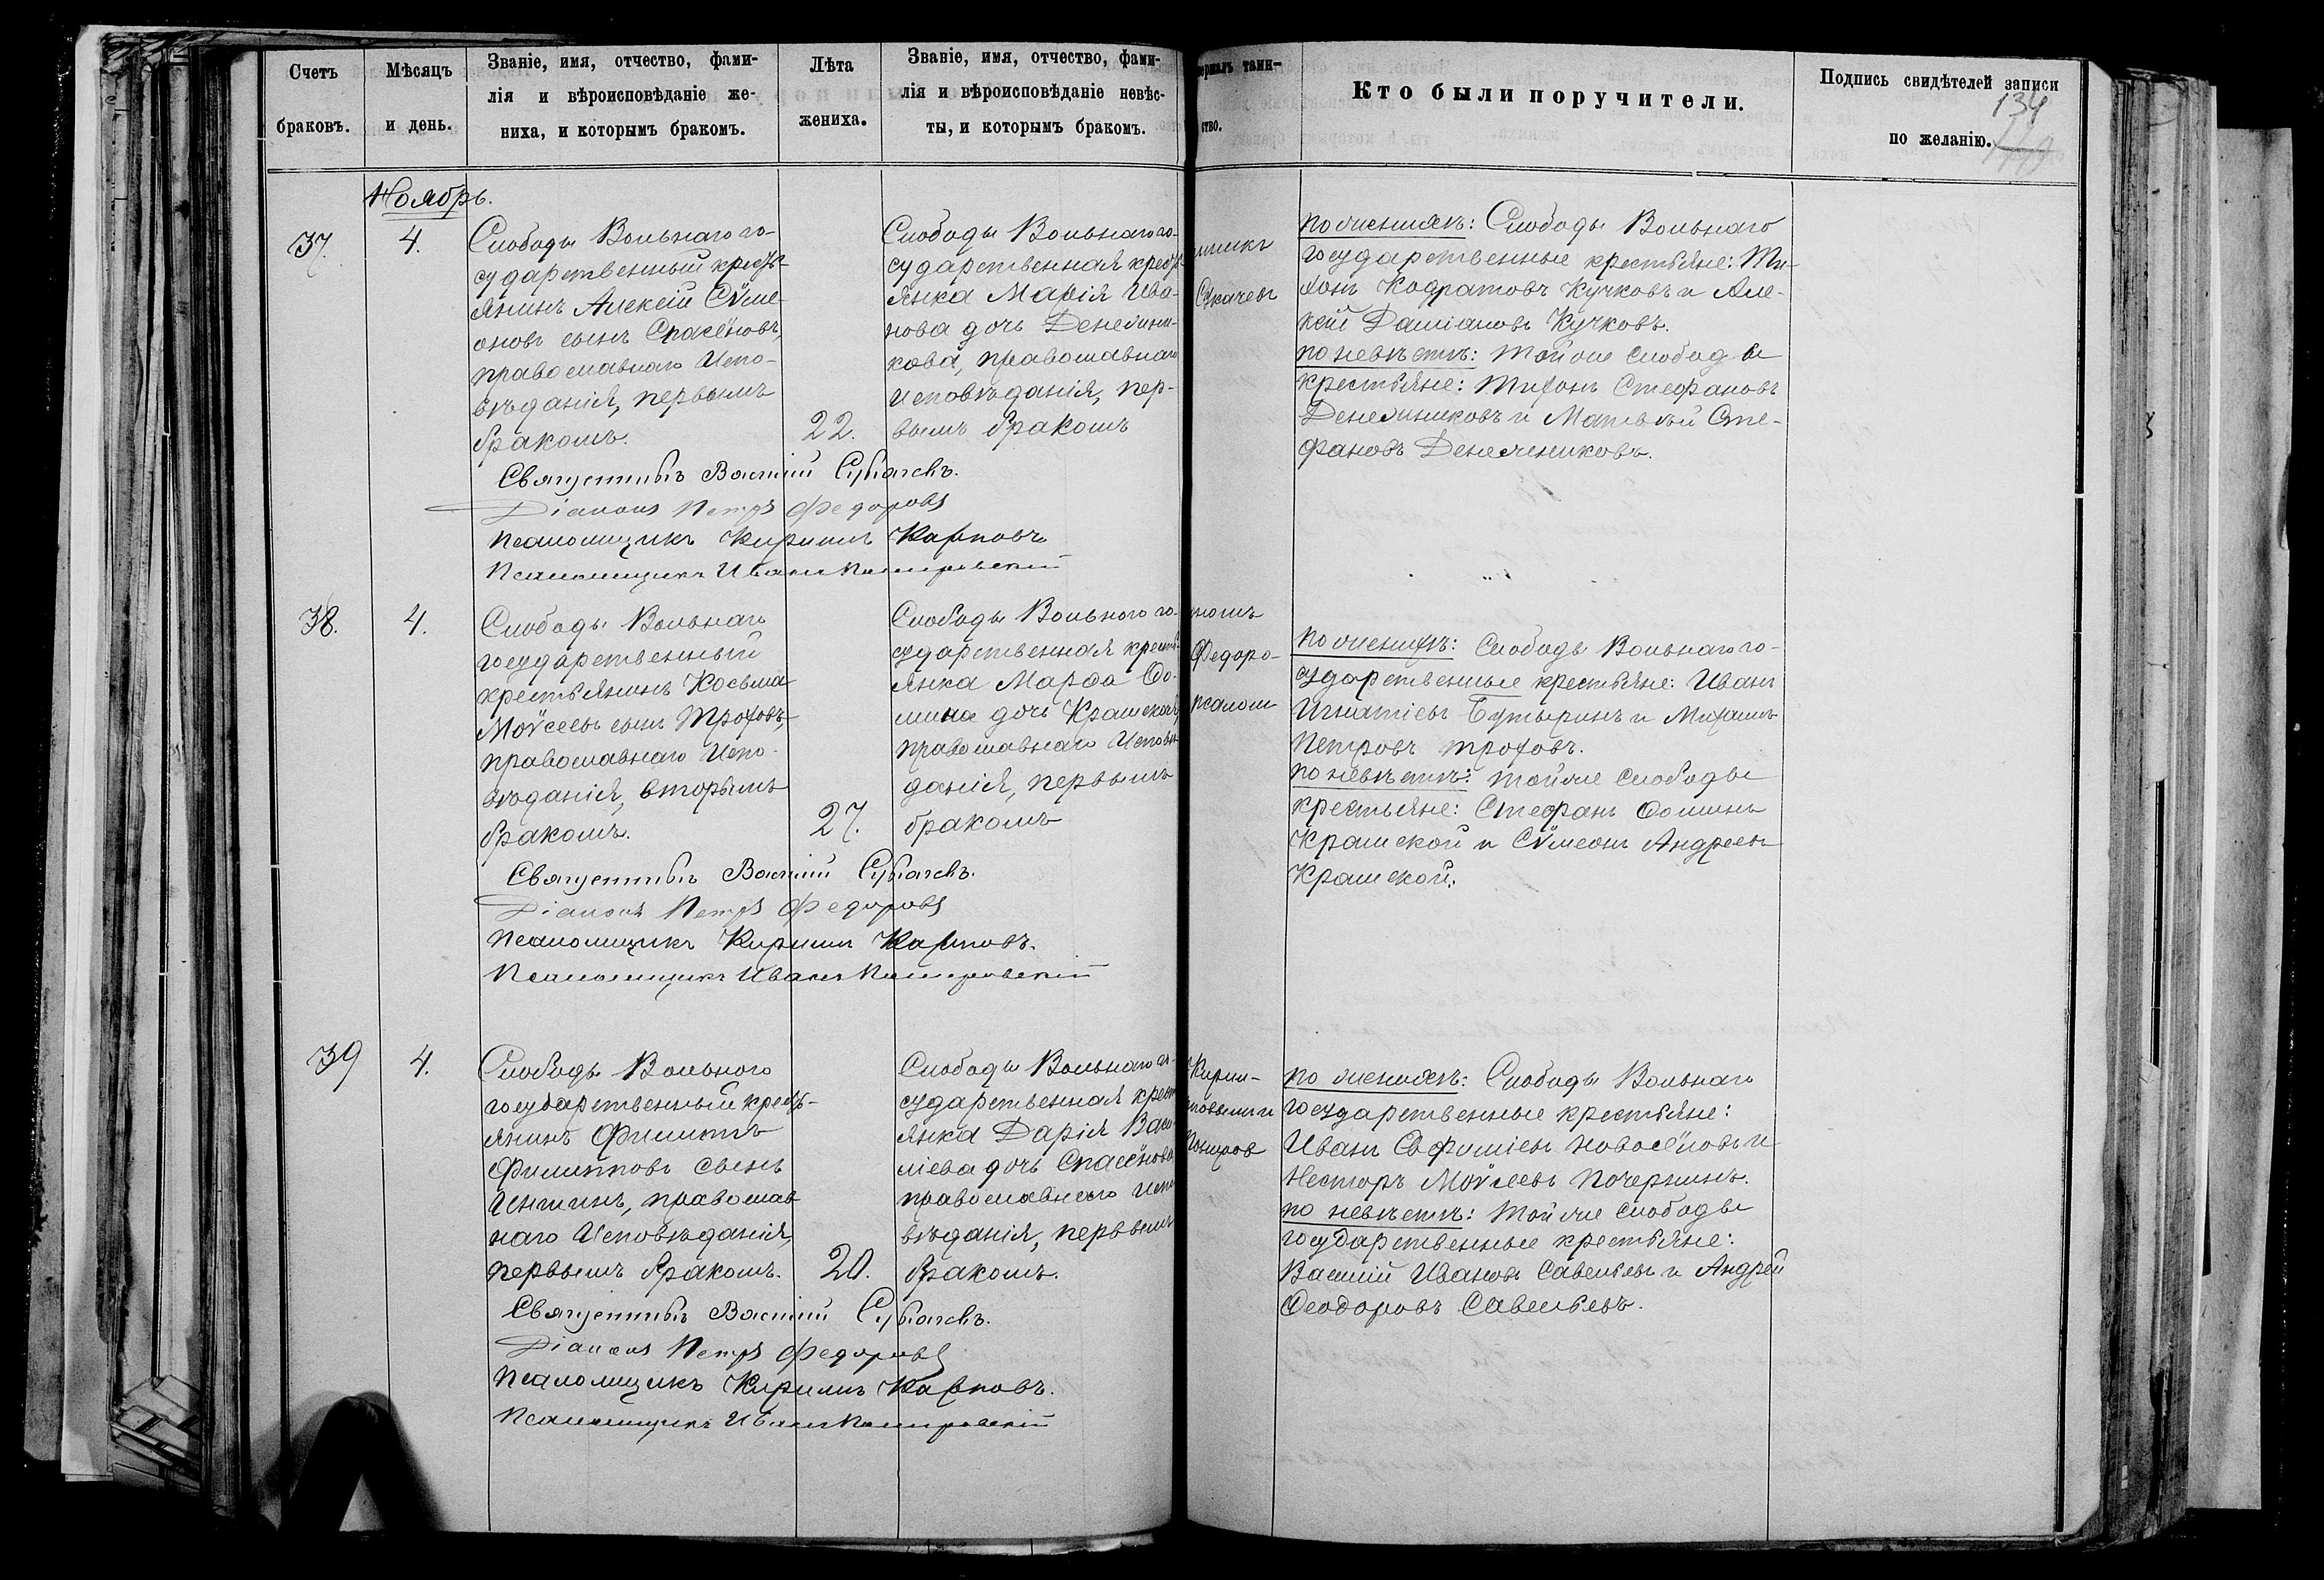 Счетъ
браковъ.
Мѣсяцъ
и день.
Званіе, имя, отчество, фами-
лія и вѣроисповѣданіе же-
ниха, и которымъ бракомъ.
Лѣта
жениха.
Званіе, имя, отчество, фами-
лія и вѣроисповѣданіе невѣс-
ты, и которымъ бракомъ.
таин-
ство.
Кто были поручители.
Подпись свидѣтелей записи
по желанію.
134
Ноябрь.
37.
4.
Слободы Вольнаго го-
сударственный кресть-
янинъ Алексій Сѵме-
оновъ сынъ Спасёновъ,
православнаго Испо-
вѣданія, первымъ
бракомъ.
22.
Слободы Вольнаго го-
сударственная кресть-
янка Марія Ива-
нова дочь Денежни-
кова, православнаго
исповѣданія, пер-
вымъ бракомъ
Скачевъ
по женихѣ: Слободы Вольнаго
государственные крестьяне: Ти-
хонъ Кодратовъ Кучковъ и Але-
ксій Даміановъ Кучковъ.
по невѣстѣ: той же слободы
крестьяне: Тихонъ Стефановъ
Денежниковъ и Матвѣй Сте-
фановъ Денежниковъ.
Василій
Діаконъ Петръ Федоровъ
Псаломщикъ Кирилъ Карповъ
Псаломщикъ Иванъ
38.
4.
Слободы Вольнаго
государственный
крестьянинъ Косьма
Моѵсеевъ сынъ Трофовъ,
православнаго Испо-
вѣданія, вторымъ
бракомъ.
27.
Слободы Вольного го-
сударственная кресть-
янка Марѳа Ѳо-
мина дочь
православнаго Исповѣ-
данія, первымъ
бракомъ
Федоро-
псалом
по женихѣ: Слободы Вольнаго го-
сударственные крестьяне: Иванъ
Игнатіевъ Бутыринъ и Михаилъ
Петровъ Трофовъ.
по невѣстѣ: той же слободы
крестьяне: Стефанъ Ѳоминъ
Крамской и Сѵмеонъ Андреевъ
Крамской.
Василій
Діаконъ Петръ Федоровъ
Псаломщикъ Кирилъ Карповъ.
Псаломщикъ Иванъ
39
4.
Слободы Вольного
государственный кресть-
янинъ Филиппъ
Филипповъ сынъ
православ-
наго Исповѣданія,
первымъ бракомъ.
20.
Слободы Вольнаго го-
сударственная крест
янка Дарія Васи
ліева дочь Спасёнова
православнаго испо
вѣданія, первымъ
бракомъ.
Кирил-
по женихѣ: Слободы Вольнаго
государственные крестьяне:
Иванъ Евфиміевъ Новосёловъ и
Несторъ Моѵсеевъ
по невѣстѣ: той же слободы
государственные крестьяне:
Василій Ивановъ Савельевъ и Андрей
Ѳеодоровъ Савельевъ.
Василій
Діаконъ Петръ Федоровъ
Псаломщикъ Кирилъ Карповъ.
Псаломщикъ Иванъ